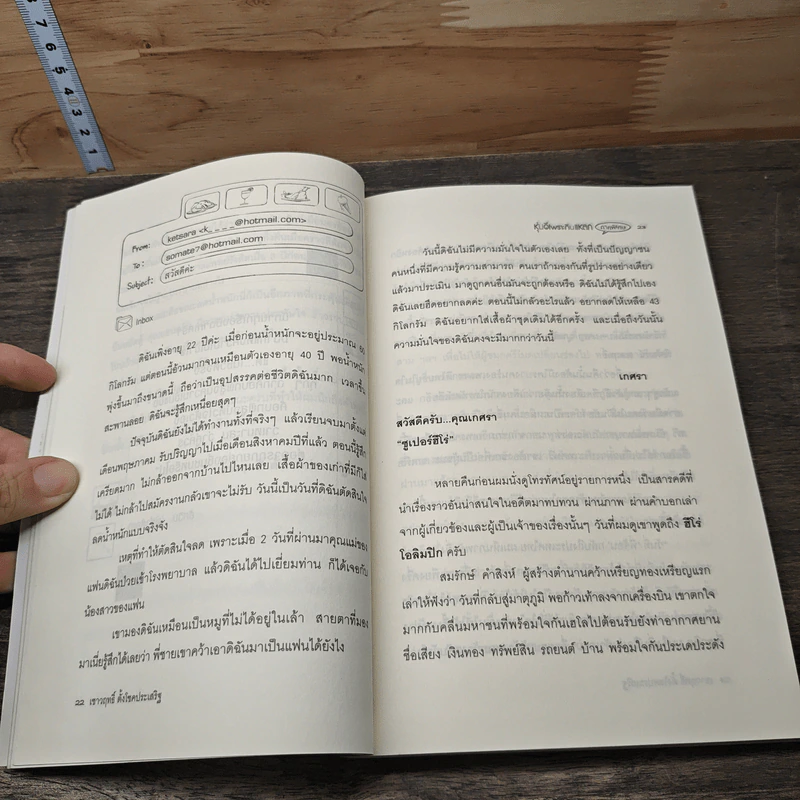 8 7 6 5 4 3 2 1
From: ketsara <k_ _ _ _@hotmail.com>
To: somate7@hotmail.com
Subject: สวัสดีค่ะ
Inbox
ดิฉันเพิ่งอายุ 22 ปีค่ะ เมื่อก่อนน้ำหนักจะอยู่ประมาณ 60
กิโลกรัม แต่ตอนนี้อ้วนมากจนเหมือนตัวเองอายุ 40 ปี พอน้ำหนัก
พุ่งขึ้นมาถึงขนาดนี้ ถือว่าเป็นอุปสรรคต่อชีวิตดิฉันมาก เวลาขึ้น
สะพานลอย ดิฉันจะรู้สึกเหนื่อยสุดๆ
ปัจจุบันดิฉันยังไม่ได้ทำงานทั้งที่จริงๆ แล้วเรียนจบมาตั้งแต่
เดือนพฤษภาคม รับปริญญาไปเมื่อเดือนสิงหาคมปีที่แล้ว ตอนนี้รู้สึก
เครียดมาก ไม่กล้าออกจากบ้านไปไหนเลย เสื้อผ้าของเก่าที่มีก็ใส่
ไม่ได้ ไม่กล้าไปสมัครงานกลัวเขาจะไม่รับ วันนี้เป็นวันที่ดิฉันตัดสินใจ
ลดน้ำหนักแบบจริงจัง
เหตุที่ทำให้ตัดสินใจลด เพราะเมื่อ 2 วันที่ผ่านมาคุณแม่ของ
แฟนดิฉันป่วยเข้าโรงพยาบาล แล้วดิฉันได้ไปเยี่ยมท่าน ก็ได้เจอกับ
น้องสาวของแฟน
เขามองดิฉันเหมือนเป็นหมูที่ไม่ได้อยู่ในเล้า สายตาที่มอง
มาเนี่ยรู้สึกได้เลยว่า พี่ชายเขาคว้าเอาดิฉันมาเป็นแฟนได้ยังไง
22 เชาวฤทธิ์ ตั้งโชคประเสริฐ
23
วันนี้ดิฉันไม่มีความมั่นใจในตัวเองเลย ทั้งที่เป็นปัญญาชน
คนหนึ่งที่มีความรู้ความสามารถ คนเราถ้ามองกันที่รูปร่างอย่างเดียว
แล้วมาประเมิน มาดูถูกคนอื่นมันจะถูกต้องหรือ ดิฉันไม่ได้รู้สึกไปเอง
ดิฉันเลยฮึดอยากลดค่ะ ตอนนี้ไม่กลัวอะไรแล้ว อยากลดให้เหลือ 43
กิโลกรัม ดิฉันอยากใส่เสื้อผ้าชุดเดิมได้อีกครั้ง และเมื่อถึงวันนั้น
ความมั่นใจของดิฉันคงจะมีมากกว่าวันนี้
เกศรา
สวัสดีครับ...คุณเกศรา
“ซูเปอร์ฮีโร่”
หลายคืนก่อนผมนั่งดูโทรทัศน์อยู่รายการหนึ่ง เป็นสารคดีที่
นำเรื่องราวอันน่าสนใจในอดีตมาทบทวน ผ่านภาพ ผ่านคำบอกเล่า
จากผู้เกี่ยวข้องและผู้เป็นเจ้าของเรื่องนั้นๆ วันที่ผมดูเขาพูดถึง ฮีโร่
โอลิมปิก ครับ
สมรักษ์ คำสิงห์ ผู้สร้างตำนานคว้าเหรียญทองเหรียญแรก
เล่าให้ฟังว่า วันที่กลับสู่มาตุภูมิ พอก้าวเท้าลงจากเครื่องบิน เขาตกใจ
มากกับคลื่นมหาชนที่พร้อมใจกันเฮโลไปต้อนรับยังท่าอากาศยาน
ชื่อเสียง เงินทอง ทรัพย์สิน รถยนต์ บ้าน พร้อมใจกันประเดประดัง